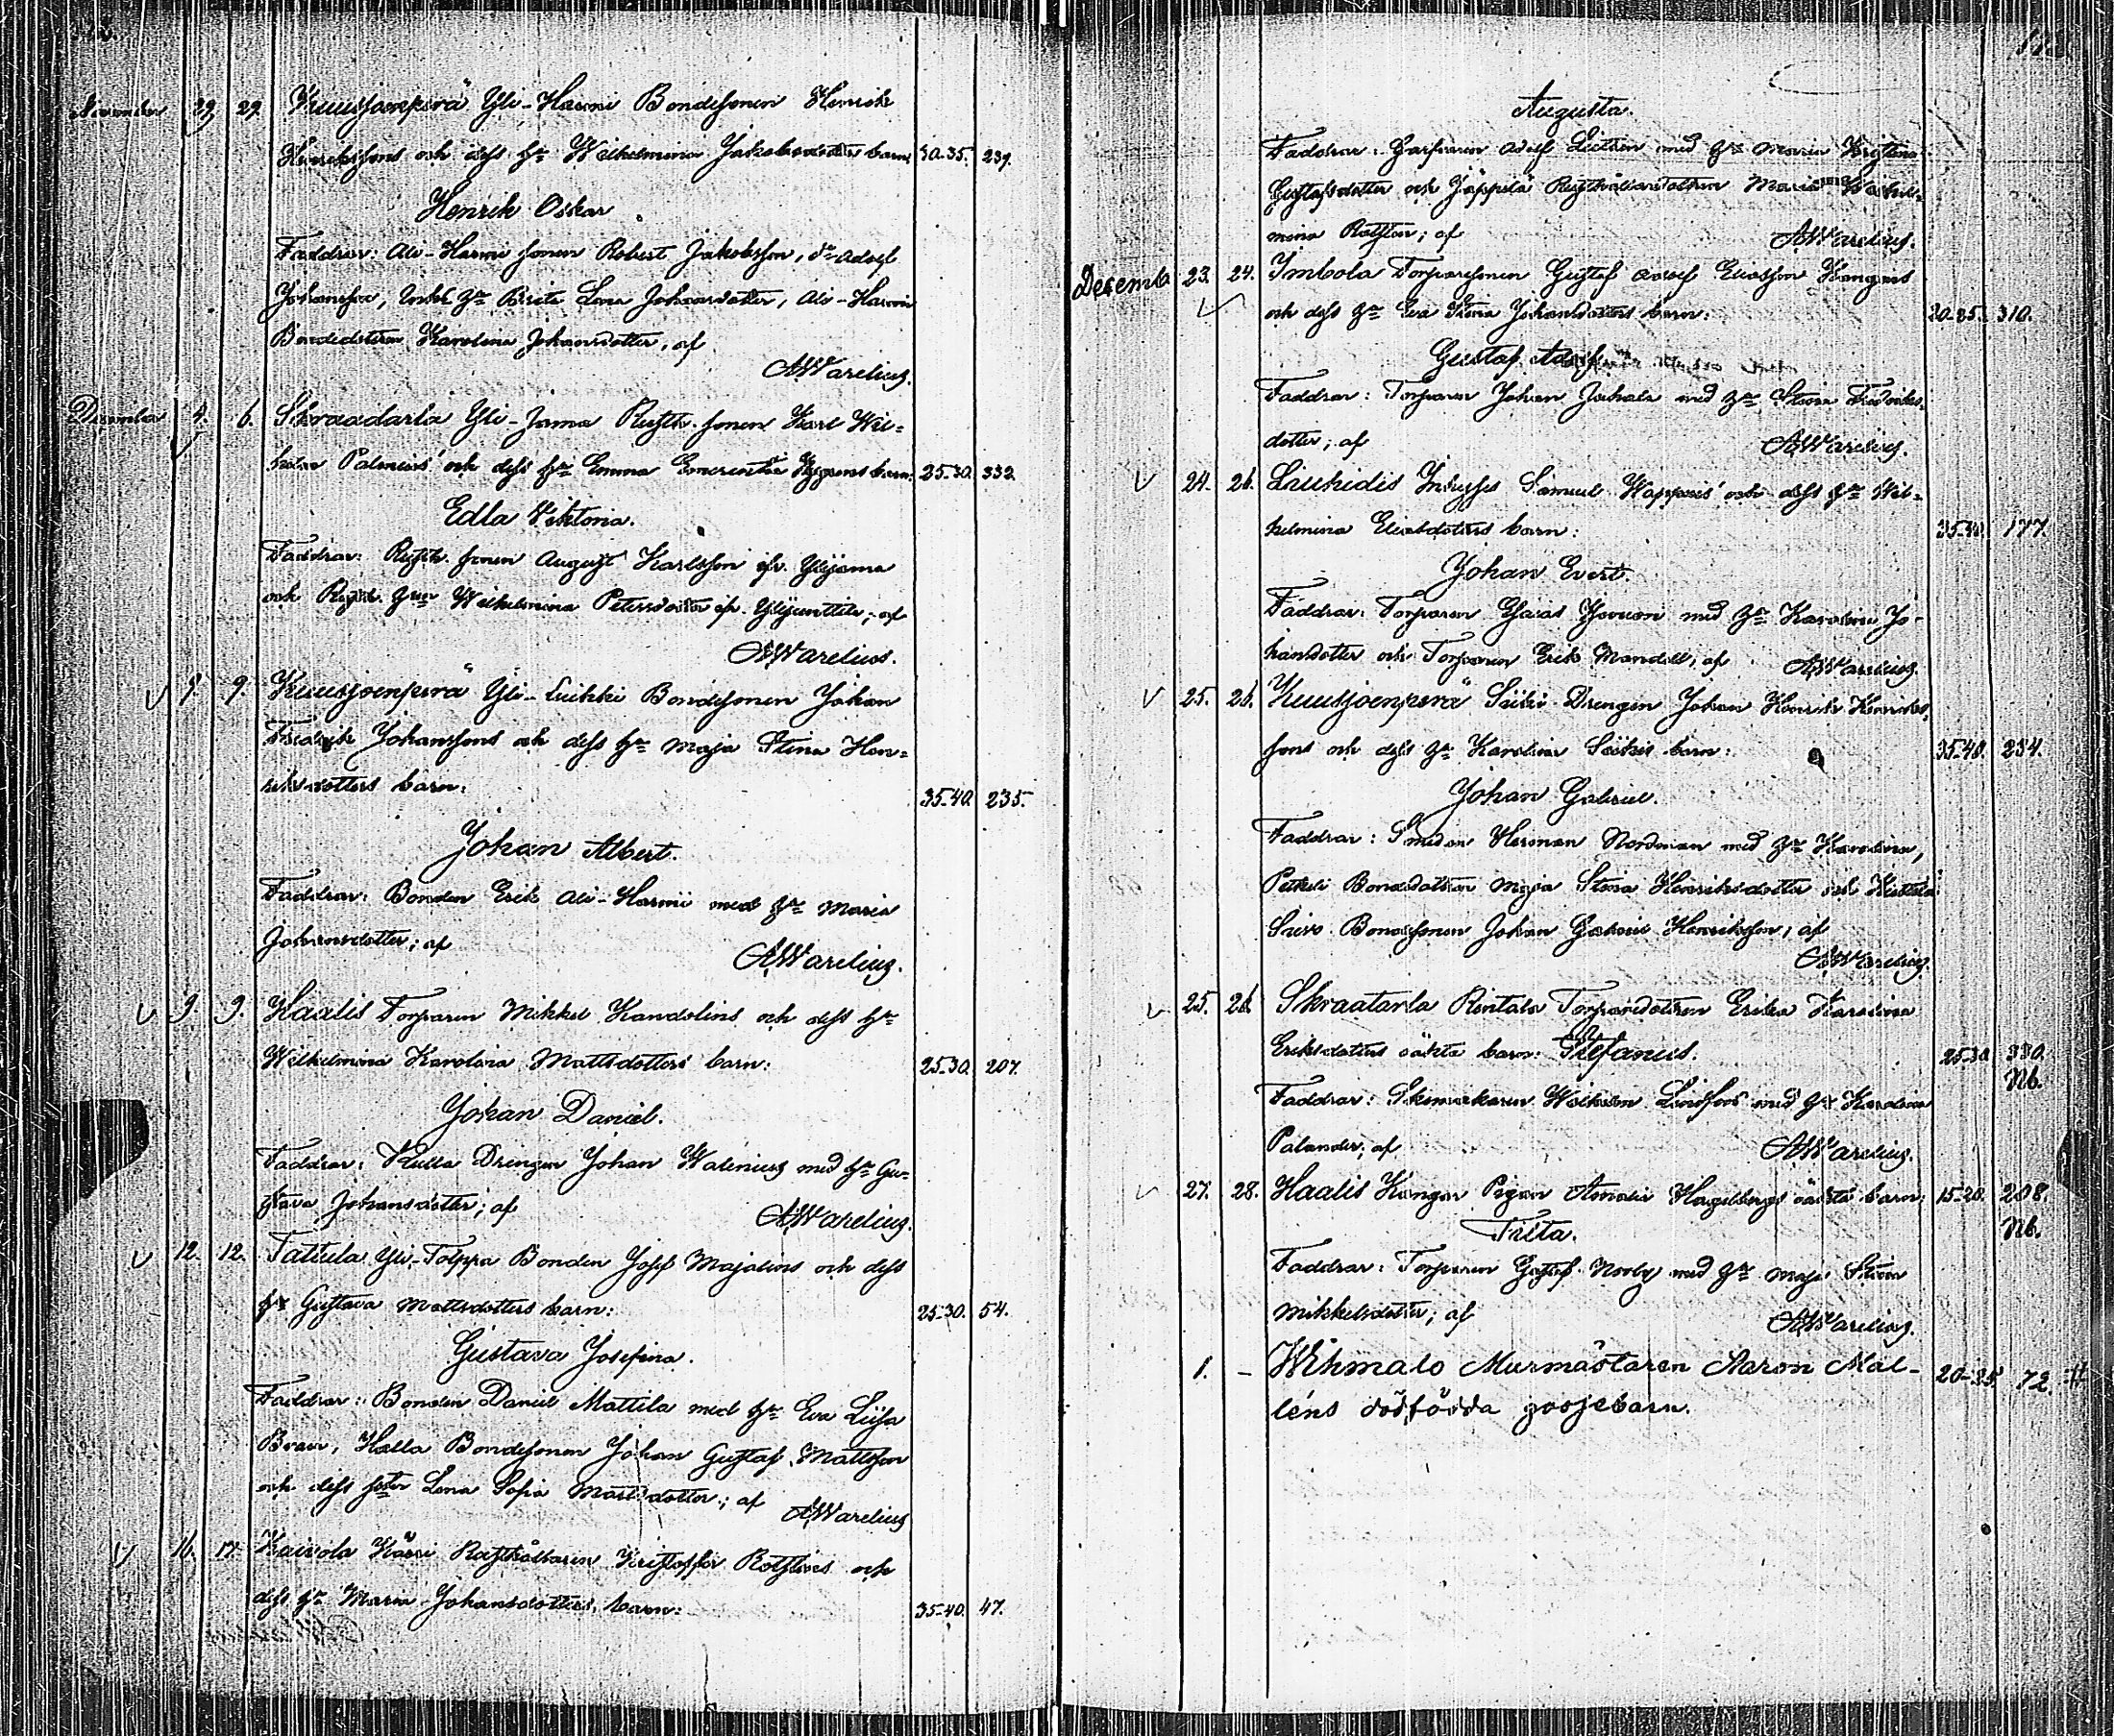 November 29 29. Kuusjoenperä Yli-Harmi Bondesonen Henrik
Henrikssons och dess hu Wilhelmina Jakobsdotters barn 30-35. 239.
Henrik Oskar
Faddrar: Ali-Harmi sonen Robert Jakobsson, do Adolf
Johansson, hu Brita Lena Johansdotter, Ali-Harmi
Bondedottren Karolina Johansdotter, af
AWarelius.
December 4. 6. Skraadarla Yli-Jama Rusth. sonen Karl Wil=
helm Palenius' och dess hu Emma Emerentia barn 25-30. 332.
Edla Viktoria.
Faddrar: Rusth. sonen August Karlsson fr. Ylijama
och Rusth. hun Wilhelmina Petersdotter fr. Ylijunttila; af
AWarelius.
8. 9. Kuusjoenperä Yli-Luikki Bondesonen Johan
Fredrik Johanssons och dess hu Maja Stina Hen=
riksdotters barn: 35-40. 235.
Johan Albert.
Faddrar: Bonden Erik Ali-Harmi med hu Maria
Johansdotter; af
AWarelius.
9. 9. Haalis Torparen Mikkel Kandolins och dess hu
Wilhelmina Karolina Mattsdotters barn: 25-30. 207.
Johan Daniel.
Faddrar: Kulla Drengen Johan Walenius med hu Gu=
stava Johansdotter; af AWarelius.
12. 12. Tattula Yli-Tolppa Bonden Josef Majalins och dess
hu Gustava Mattsdotters barn: 25-30. 54.
Gustava Josefina.
Faddrar: Bonden Daniel Mattila med hu Eva Lisa
Halla Bondesonen Johan Gustaf Mattsson
och dess syster Lena Sofia Mattsdotter; af AWarelius
16. 17. Kaivola Kärri Rusthållaren Kristoffer Rostens och
dess hu Maria Johansdotters barn: 35-40. 47.
Augusta.
Faddrar: Garfvaren Adolf med hu Maria Kristina
Gustafsdotter och Jäppilä Rusthållaredottren Maria Wilhel=
mina; af AWarelius.
December 23. 24. Imbola Torparesonen Gustaf Adolf Eliasson Kangas
och dess hu Eva Stina Johansdotters barn: 20-25. 310.
Gustaf Adolf.
Faddrar: Torparen Johan Jaskala med hu Stina Fredriks=
dotter; af AWarelius.
24. 26. Liuhidis Inhyses Samuel och dess hu Wil=
helmina Eliaedotters barn: 35-40. 177.
Johan Evert.
Faddrar: Torparen Esaias med hu Karolina Jo=
hansdotter och Torparen Erik Mandell, af AWarelius.
25. 26. Kuusjoenperä Seiki Drengen Johan Henrik Henriks=
sons och dess hu Karolina Seikis barn: 35-40. 234.
Johan Gabriel.
Faddrar: Smeden Herman Nordman med hu Karolina,
Bondedottren Maja Stina Henriksdotter och
Bondesonen Johan Gabriel Henriksson; af
AWarelius.
25. 26. Skraatarla Rintala Torparedottren Erika Karolina
Eriksdotters oäkta barn: Stefanus. 25-30. 330.
Nb.
Faddrar: Skomakaren Wilhelm Lindfors med hu Karolina
Palander, af AWarelius.
27. 28. Haalis Kangar Pigan Amalia Hagelbergs oäkta barn: 15-20. 208.
Tilta. Nb.
Faddrar: Torparen Gustaf Norby med hu Maja Stina
Mikkelsdotter; af AWarelius.
1. – Wihmalo Murmästaren Aaron Mal-
léns dödfödda gossebarn. 20-25. 72. #